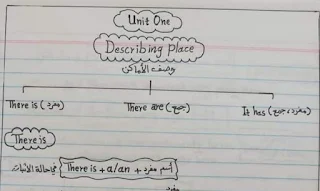 Unit One
Describing place
وصف الأماكن
There is (مفرد) There are (جمع) It has (مفرد، جمع)
There is
في حالة الاثبات There is + a/an + أسم مفرد
مفرد